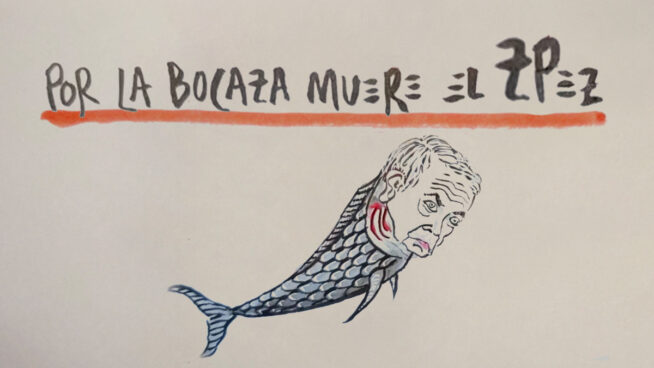 POR LA BOCAZA MUERE EL ZPEZ